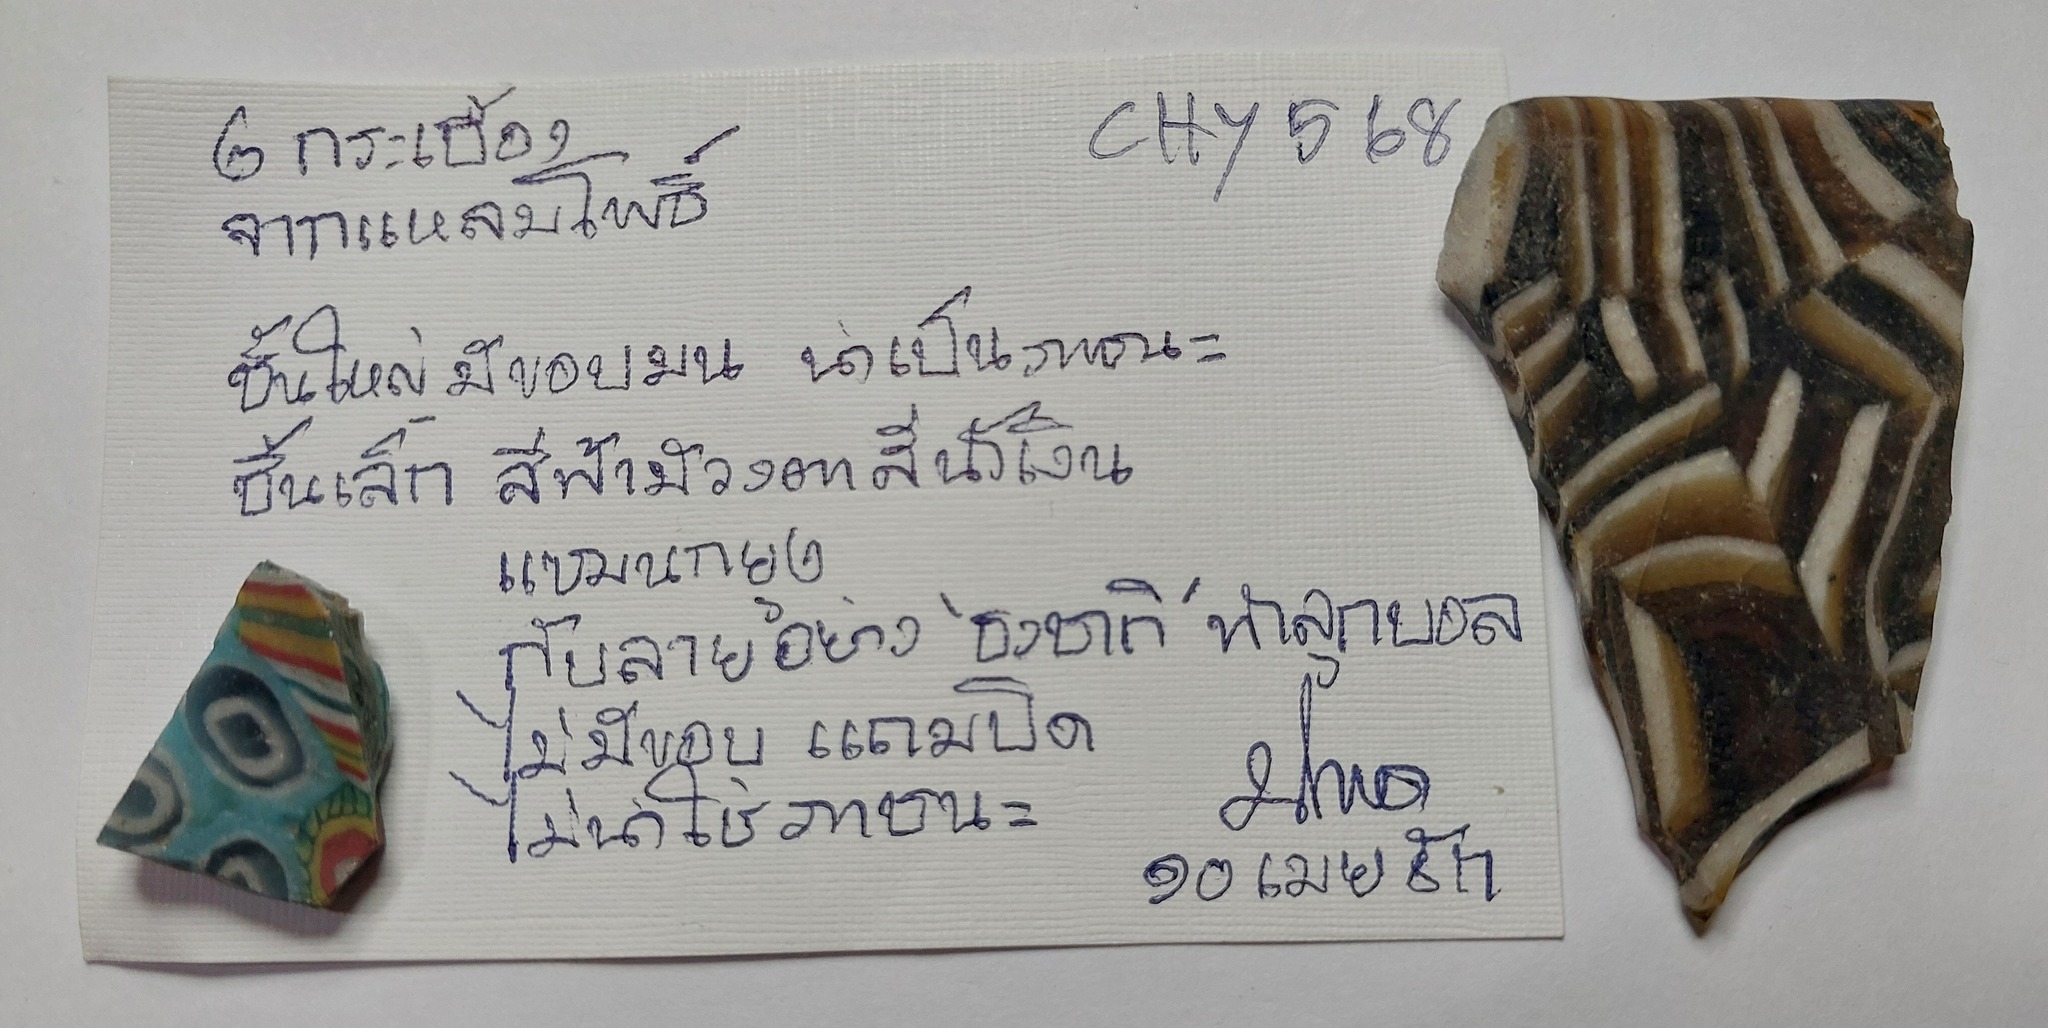 ๒ กระเบื้อง
CHY 568
จากแหลมโพธิ์
ชิ้นใหญ่ มีขอบมน น่าเป็นภาชนะ
ชิ้นเล็ก สีฟ้ามีวงตาสีน้ำเงิน
แซมนกยูง
กับลายอย่าง 'ธงชาติ' ทำลูกบอล
ไม่มีขอบ แถมบิด
ไม่น่าใช่ภาชนะ
๑๐ เมษ